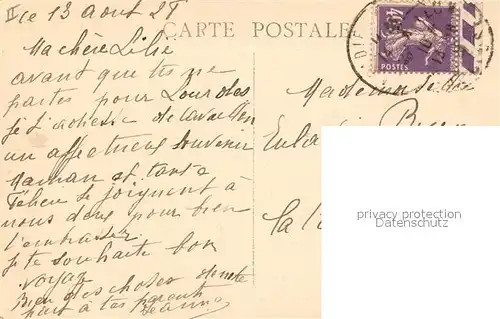 le 13 Aout 28
CARTE POSTALE
Ma chère Lilie
avant que tu ne
partes pour Lourdes
je t'adresse de
un affectueux souvenir
Maman et tante
se joignent à
nous deux pour bien
t'embrasser
je te souhaite bon
voyag
Bien des choses de notre
part à tes parents
Jeanne
POSTES
Mademoiselle
privacy protection
Datenschutz